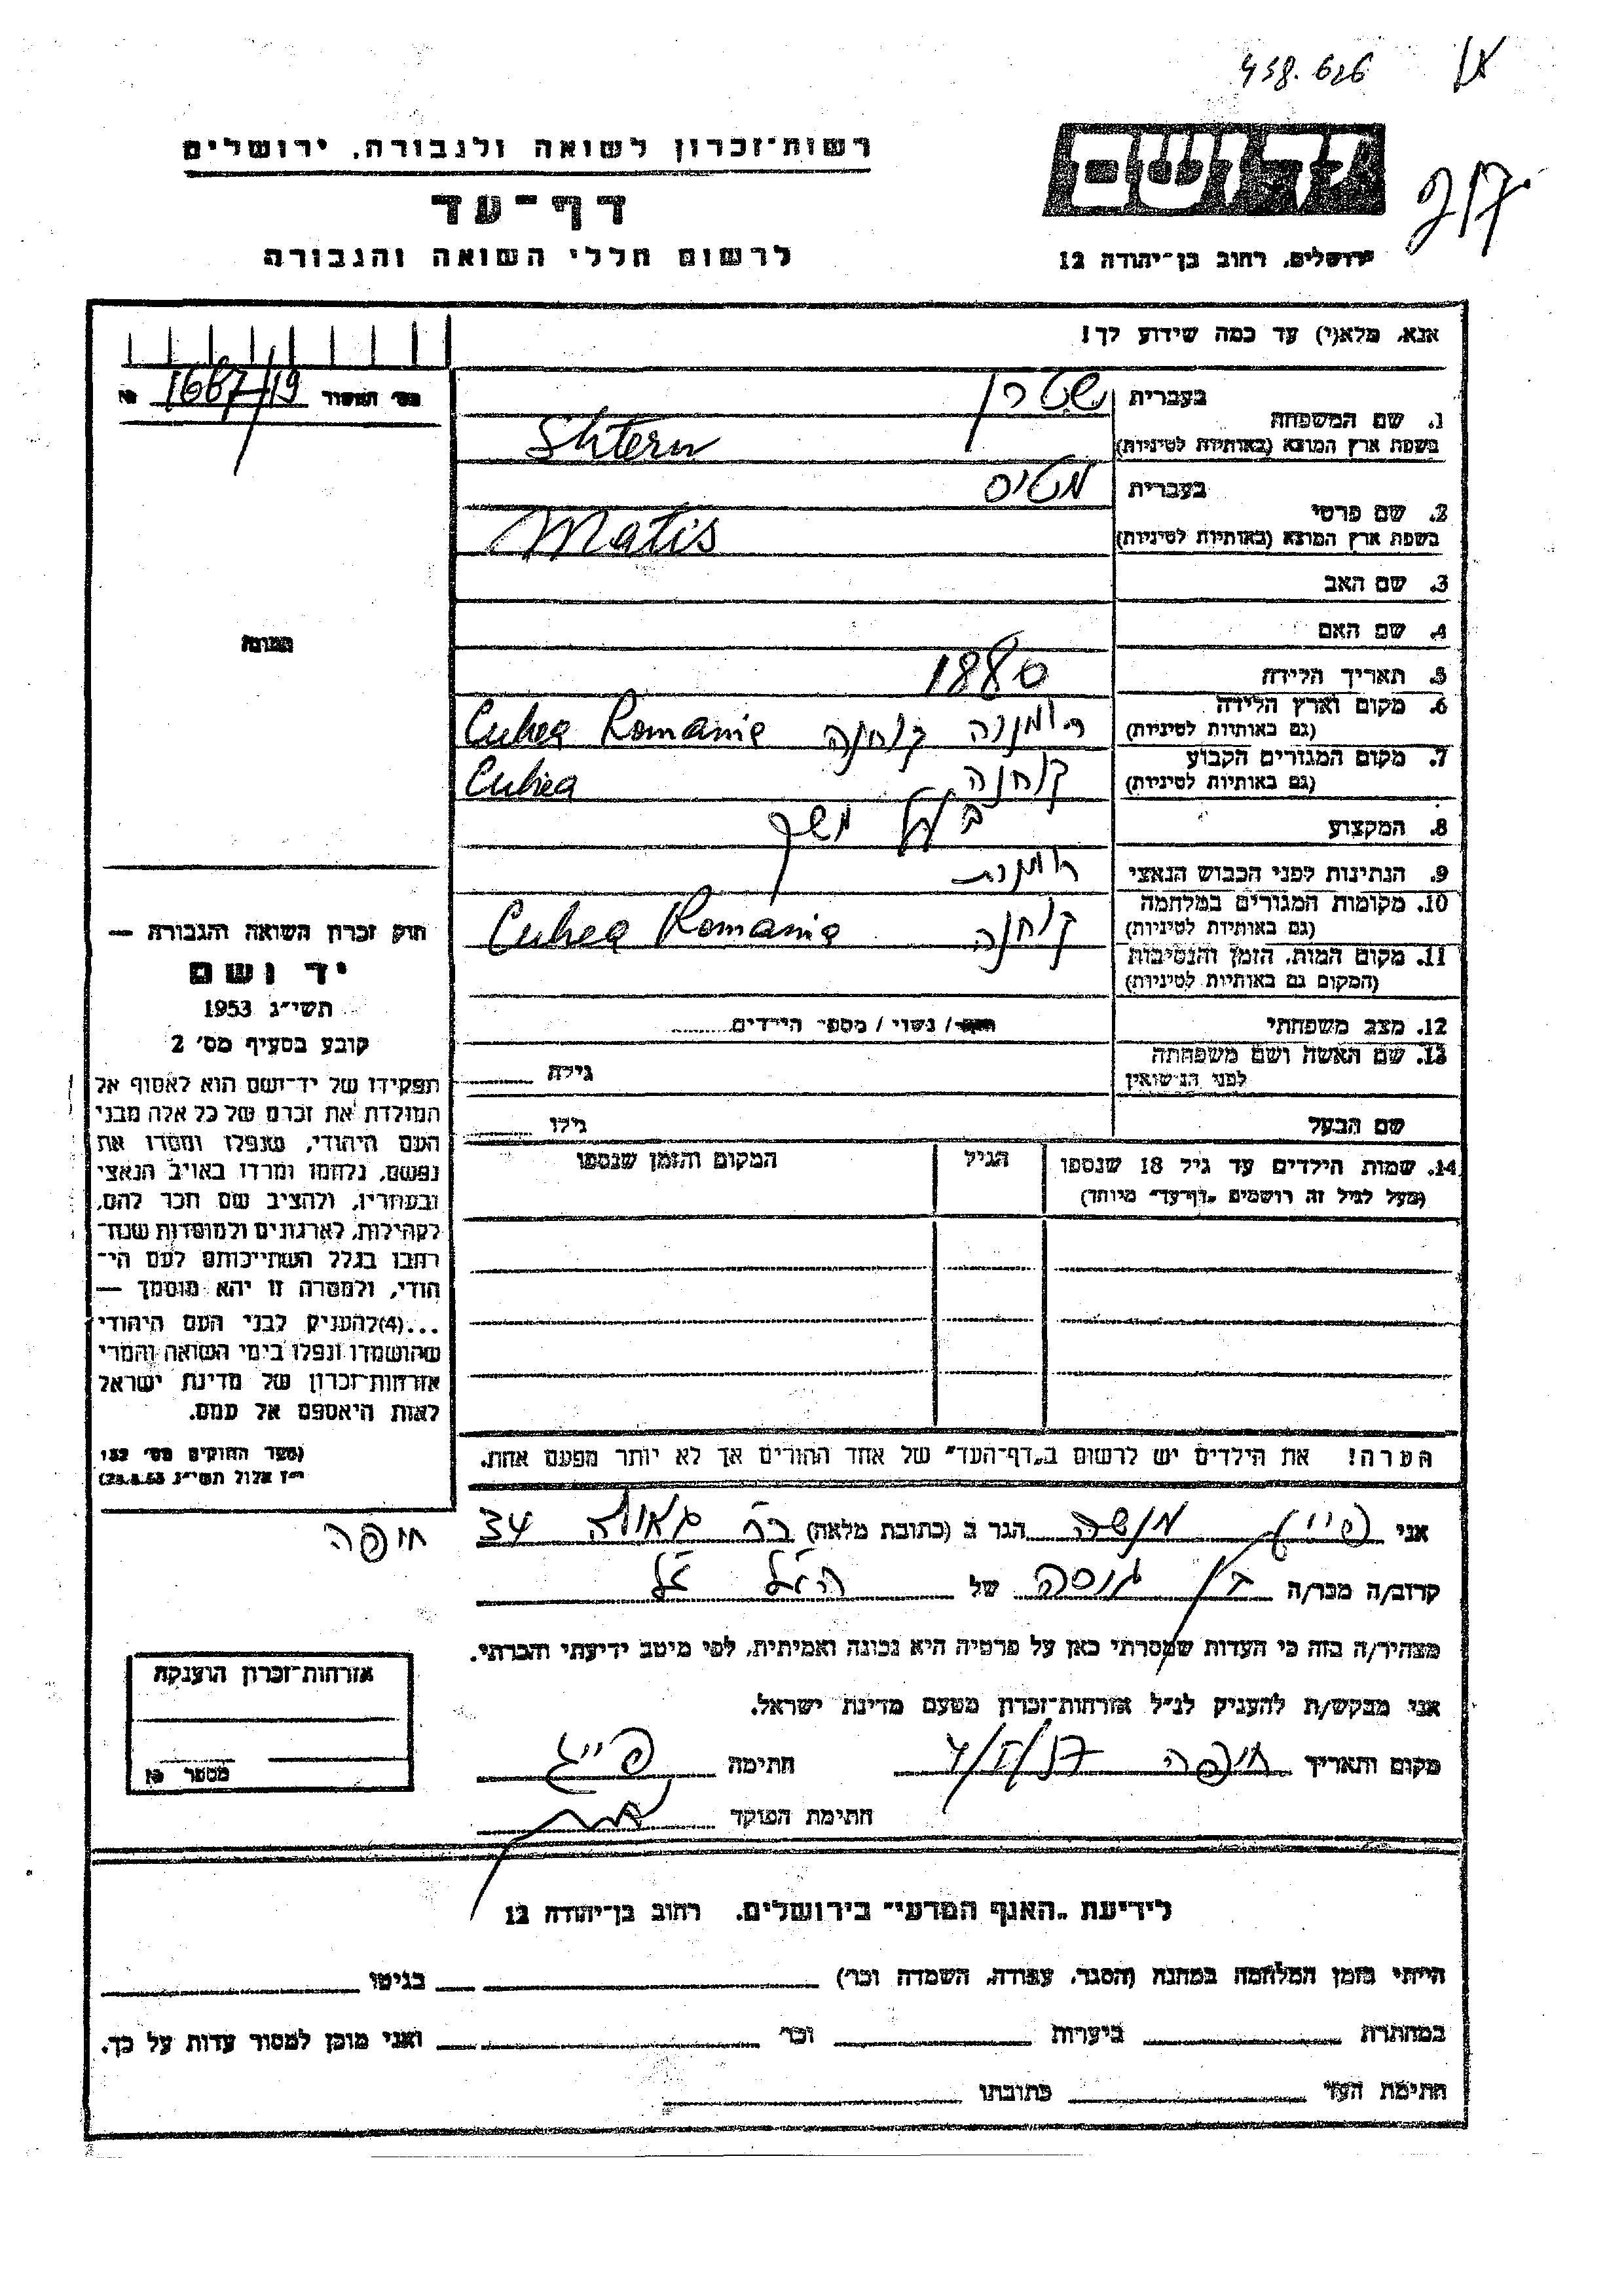 438.626
217
ידושם
רשות־זכרון לשואה ולגבורה. ירושלים
דף־עד
לרשום חללי השואה והגבורה
ירושלים, רחוב בן־יהודה 12
אנא, מלא(י) עד כמה שידוע לך!
מס׳ תמסוד 1667/19 מא
1. שם המשפחה
בעברית שטרן
בשפת ארץ המוצא (באותיות לטיניות) Shtern
2. שם פרטי
בעברית מטיס
בשפת ארץ המוצא (באותיות לטיניות) Matis
3. שם האב
4. שם האם
5. תאריך הלידה 1880
6. מקום וארץ הלידה
(גם באותיות לטיניות) רומנוה קוחנה Cuhea Romania
7. מקום המגורים הקבוע
(גם באותיות לטיניות) קוחנה Cuhea
8. המקצוע בעל משק
9. הנתינות לפני הכבוש הנאצי רומנית
10. מקומות המגורים במלחמה
(גם באותיות לטיניות) קוחנה Cuhea Romania
11. מקום המות, הזמן והנסיבות
(המקום גם באותיות לטיניות)
12. מצב משפחתי רווק / נשוי / מספר הילדים
13. שם האשה ושם משפחתה
לפני הנישואין גילה
שם הבעל גילו
14. שמות הילדים עד גיל 18 שנספו
(מעל לגיל זה רושמים „דף־עד״ מיוחד)
הגיל
המקום והזמן שנספו
הערה! את הילדים יש לרשום ב„דף־העד״ של אחד ההורים אך לא יותר מפעם אחת.
תמונה
חוק זכרון השואה והגבורה —
יד ושם
תשי״ג 1953
קובע בסעיף מס׳ 2
תפקידו של יד־ושם הוא לאסוף אל
המולדת את זכרם של כל אלה מבני
העם היהודי, שנפלו ומסרו את
נפשם, נלחמו ומרדו באויב הנאצי
ובעוזריו, ולהציב שם וזכר להם,
לקהילות, לארגונים ולמוסדות שנח־
רבו בגלל השתייכותם לעם הי־
הודי, ולמטרה זו יהא מוסמך —
...(4)להעניק לבני העם היהודי
שהושמדו ונפלו בימי השואה והמרי
אזרחות־זכרון של מדינת ישראל
לאות היאספם אל עמם.
(ספר החוקים מס׳ 132
י״ז אלול תשי״ג 28.8.53)
אני פייג מנשה הגר ב (כתובת מלאה) רח גאולה 34
חיפה
קרוב/ה מכר/ה בן גיסה של הנ״ל ז״ל
מצהיר/ה בזה כי העדות שמסרתי כאן על פרטיה היא נכונה ואמיתית, לפי מיטב ידיעתי והכרתי.
אני מבקש/ת להעניק לנ״ל אזרחות־זכרון מטעם מדינת ישראל.
מקום ותאריך חיפה
חתימה פייג
חתימת הפוקד
אזרחות־זכרון הוענקה
מספר מא
לידיעת „האגף המדעי״ בירושלים. רחוב בן־יהודה 12
הייתי בזמן המלחמה במחנה (הסגר, עבודה, השמדה וכו׳) בגיטו
במחתרת ביערות וכו׳ ואני מוכן למסור עדות על כך.
חתימת העד כתובתו